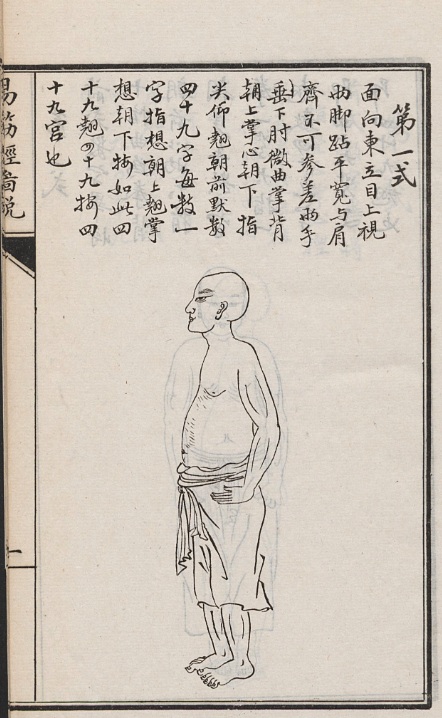 第一式
面向東立目上視
两脚跕平寬与肩
齊不可參差两手
垂下肘微曲掌背
朝上掌心朝下指
尖仰翹朝前默数
四十九字每数一
字指想朝上翹掌
想朝下按如此四
十九翹四十九按四
十九宫也
易筋經圖說
一